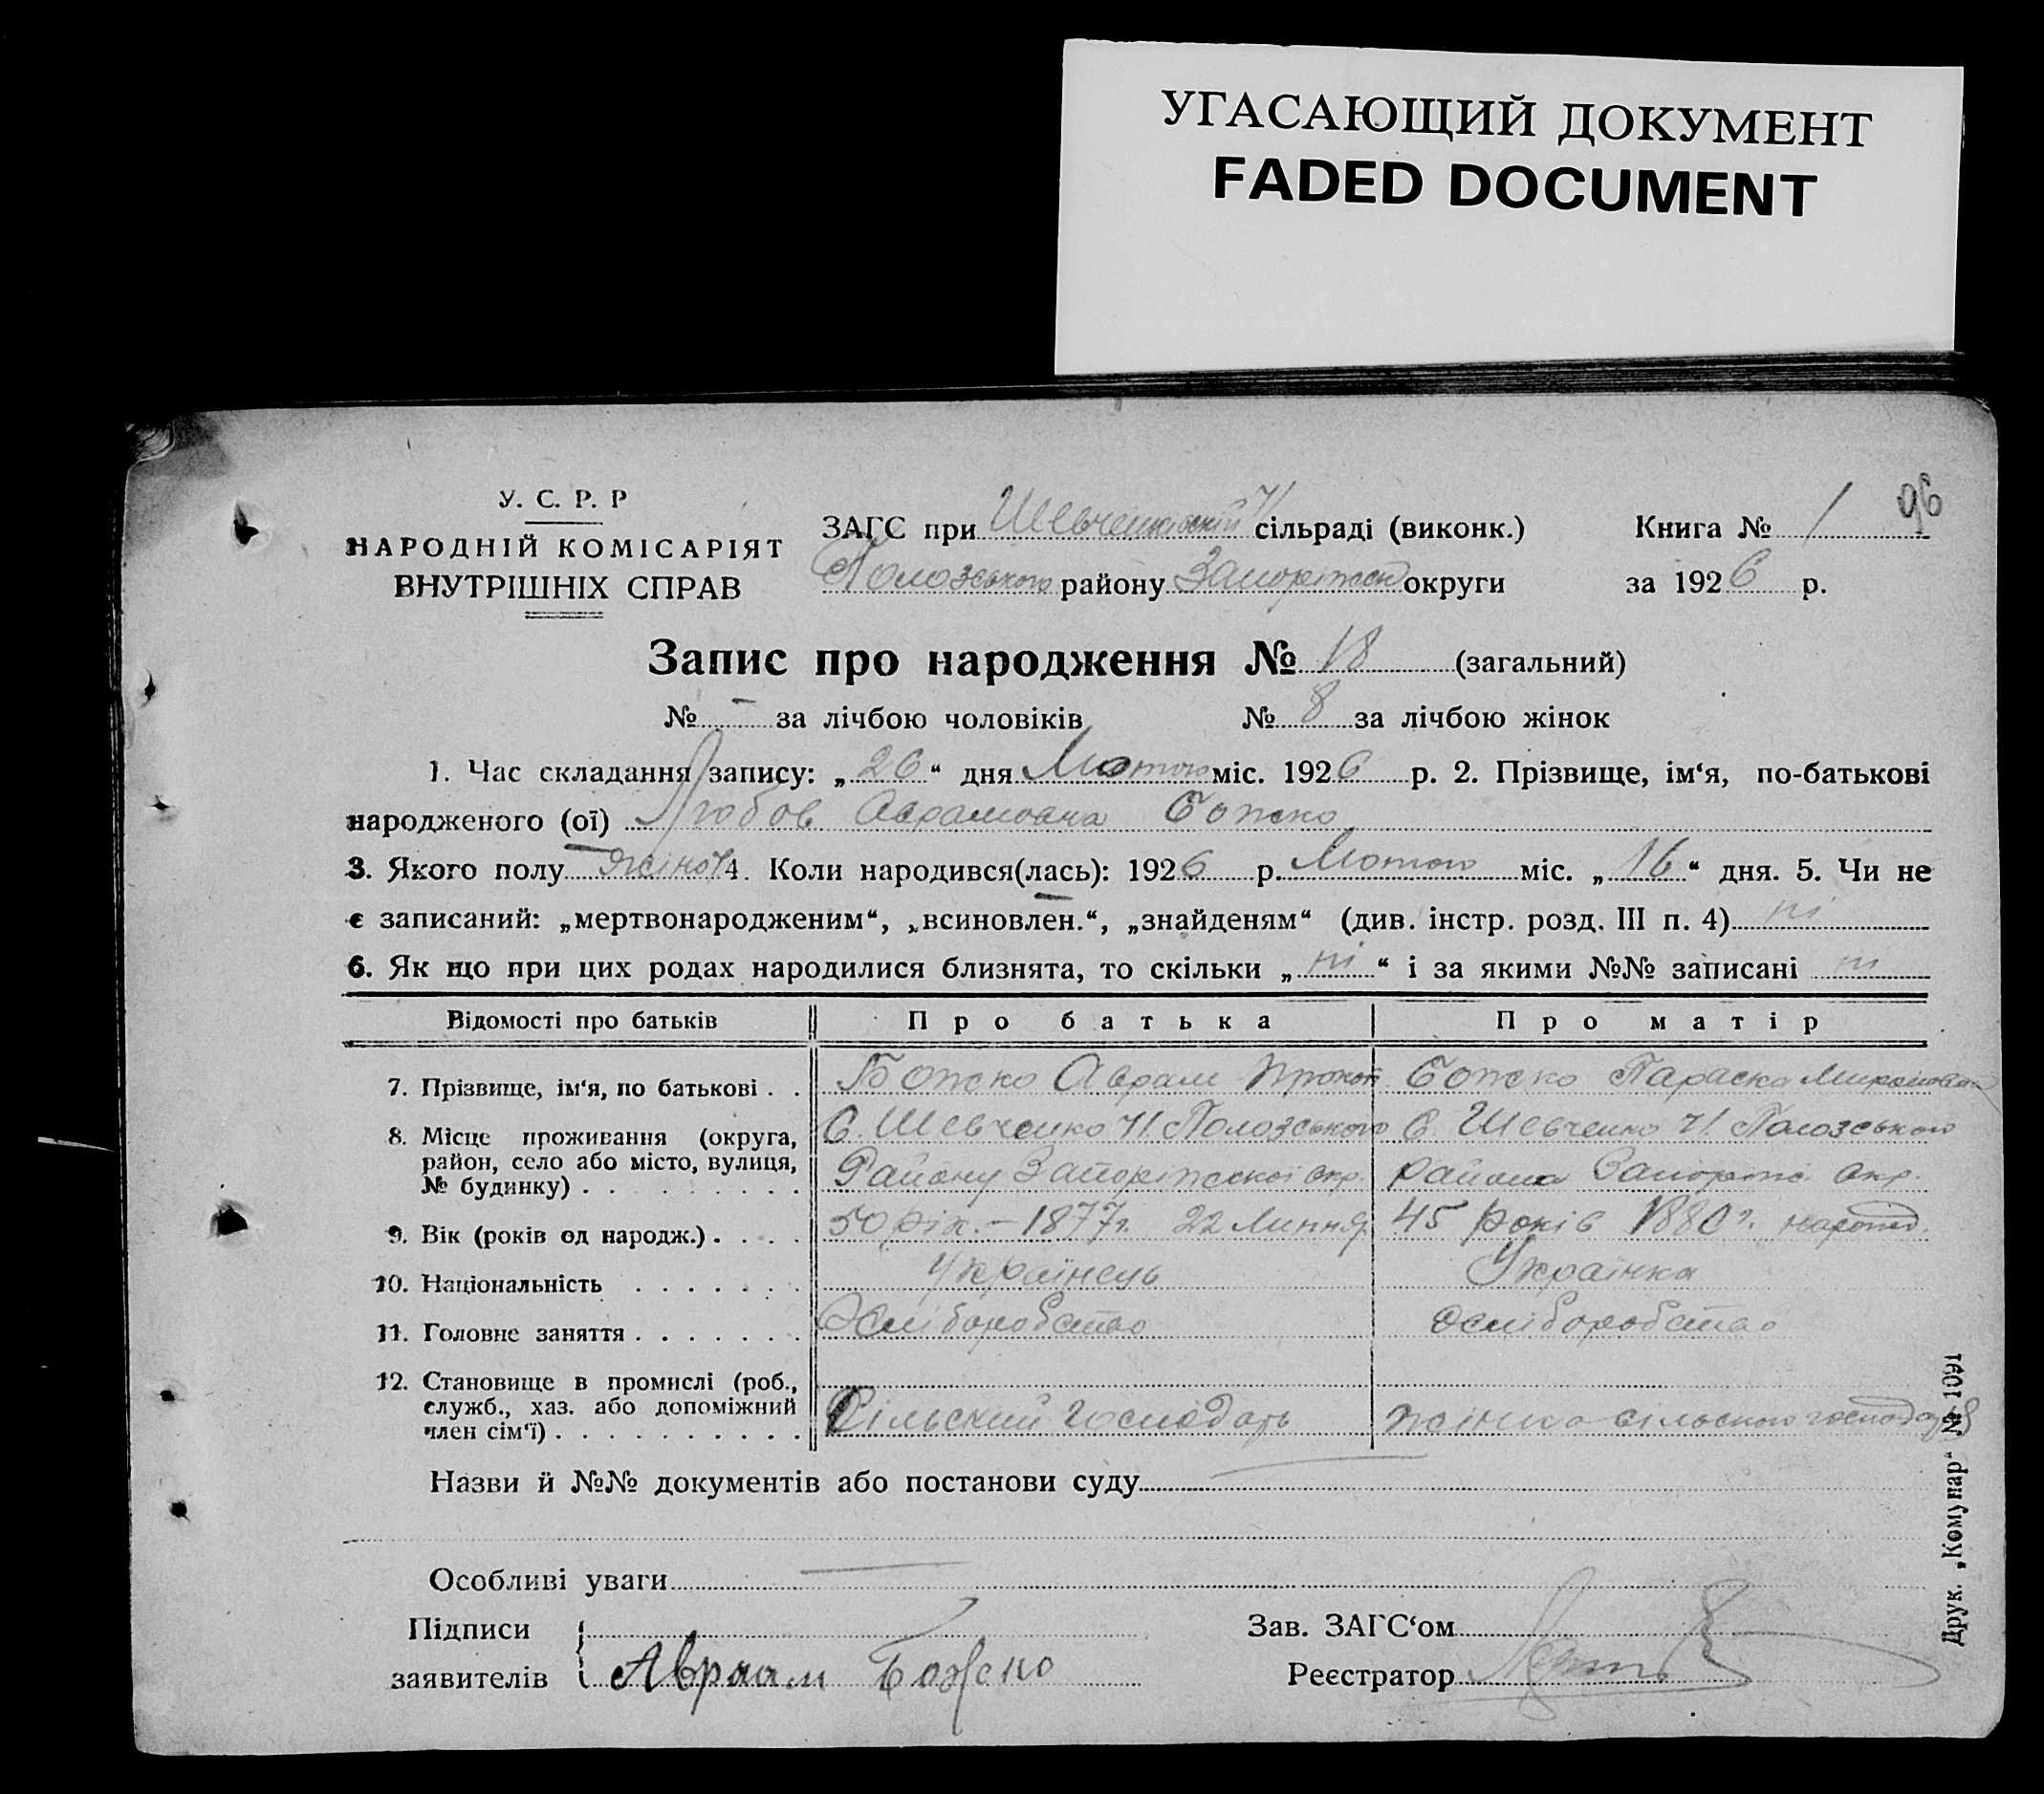 УГАСАЮЩИЙ ДОКУМЕНТ
FADED DOCUMENT
У. С. Р. Р
НАРОДНІЙ КОМІСАРІЯТ
ВНУТРІШНІХ СПРАВ
ЗАГС при Шевченківській ЧІ сільраді (виконк.)
Полозського району Запоріжськ округи
Книга № 1
96
за 1926 р.
Запис про народження № 18 (загальний)
№ - за лічбою чоловіків № 8 за лічбою жінок
1. Час складання запису: „26“ дня Лютого міс. 1926 р. 2. Прізвище, ім‘я, по-батькові
народженого (ої) Любов Аврамовна Божко
3. Якого полу жіноч 4. Коли народився(лась): 1926 р. Лютого міс. „16“ дня. 5. Чи не
є записаний: „мертвонародженим“, „всиновлен.“, „знайденям“ (див. інстр. розд. III п. 4) ні
6. Як що при цих родах народилися близнята, то скільки „ні“ і за якими №№ записані ні
Відомості про батьків Про батька Про матір
7. Прізвище, ім‘я, по батькові . . Божко Аврам Прокоп Божко Параска Мироновна
8. Місце проживання (округа, район, село або місто, вулиця, № будинку) . С. Шевченко ЧІ Полозського С. Шевченко ЧІ Полозського
Району Запоріжської окр. района Запоріж окр.
9. Вік (років од народж.) . . . . 50 рік. – 1877 г. 22 Липня 45 років 1880 г. народ.
10. Національність . . . . . . . Українець Українка
11. Головне заняття . . . . . . . Хліборобство
12. Становище в промислі (роб., служб., хаз. або допоміжний член сім‘ї) . . . . . . . . . . Сільский господарь жінка сільского господаря
Назви й №№ документів або постанови суду
Особливі уваги
Підписи
заявителів Авраам Божко
Зав. ЗАГС‘ом
Реєстратор
Друк. „Комунар“ № 1091